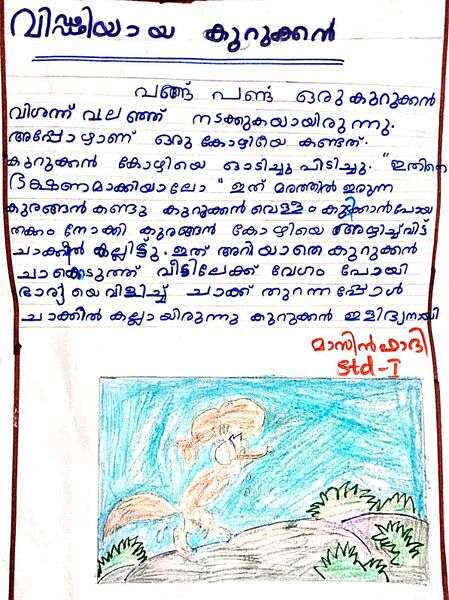 വിഢ്ഢിയായ കുറുക്കൻ
പണ്ട് പണ്ട് ഒരു കുറുക്കൻ
വിശന്ന് വലഞ്ഞ് നടക്കുകയായിരുന്നു.
അപ്പോഴാണ് ഒരു കോഴിയെ കണ്ടത്.
കുറുക്കൻ കോഴിയെ ഓടിച്ചു പിടിച്ചു. "ഇതിനെ
ഭക്ഷണമാക്കിയാലോ" ഇത് മരത്തിൽ ഇരുന്ന
കുരങ്ങൻ കണ്ടു കുറുക്കൻ വെള്ളം കുടിക്കാൻ പോയ
തക്കം നോക്കി കുരങ്ങൻ കോഴിയെ അഴിച്ച് വിട്ട്
ചാക്കിൽ കല്ലിട്ടു. ഇത് അറിയാതെ കുറുക്കൻ
ചാക്കെടുത്ത് വീട്ടിലേക്ക് വേഗം പോയി
ഭാര്യയെ വിളിച്ച് ചാക്ക് തുറന്നപ്പോൾ
ചാക്കിൽ കല്ലായിരുന്നു കുറുക്കൻ ഇളിഭ്യനായി
മാസിൻ ഹാദി
std-I